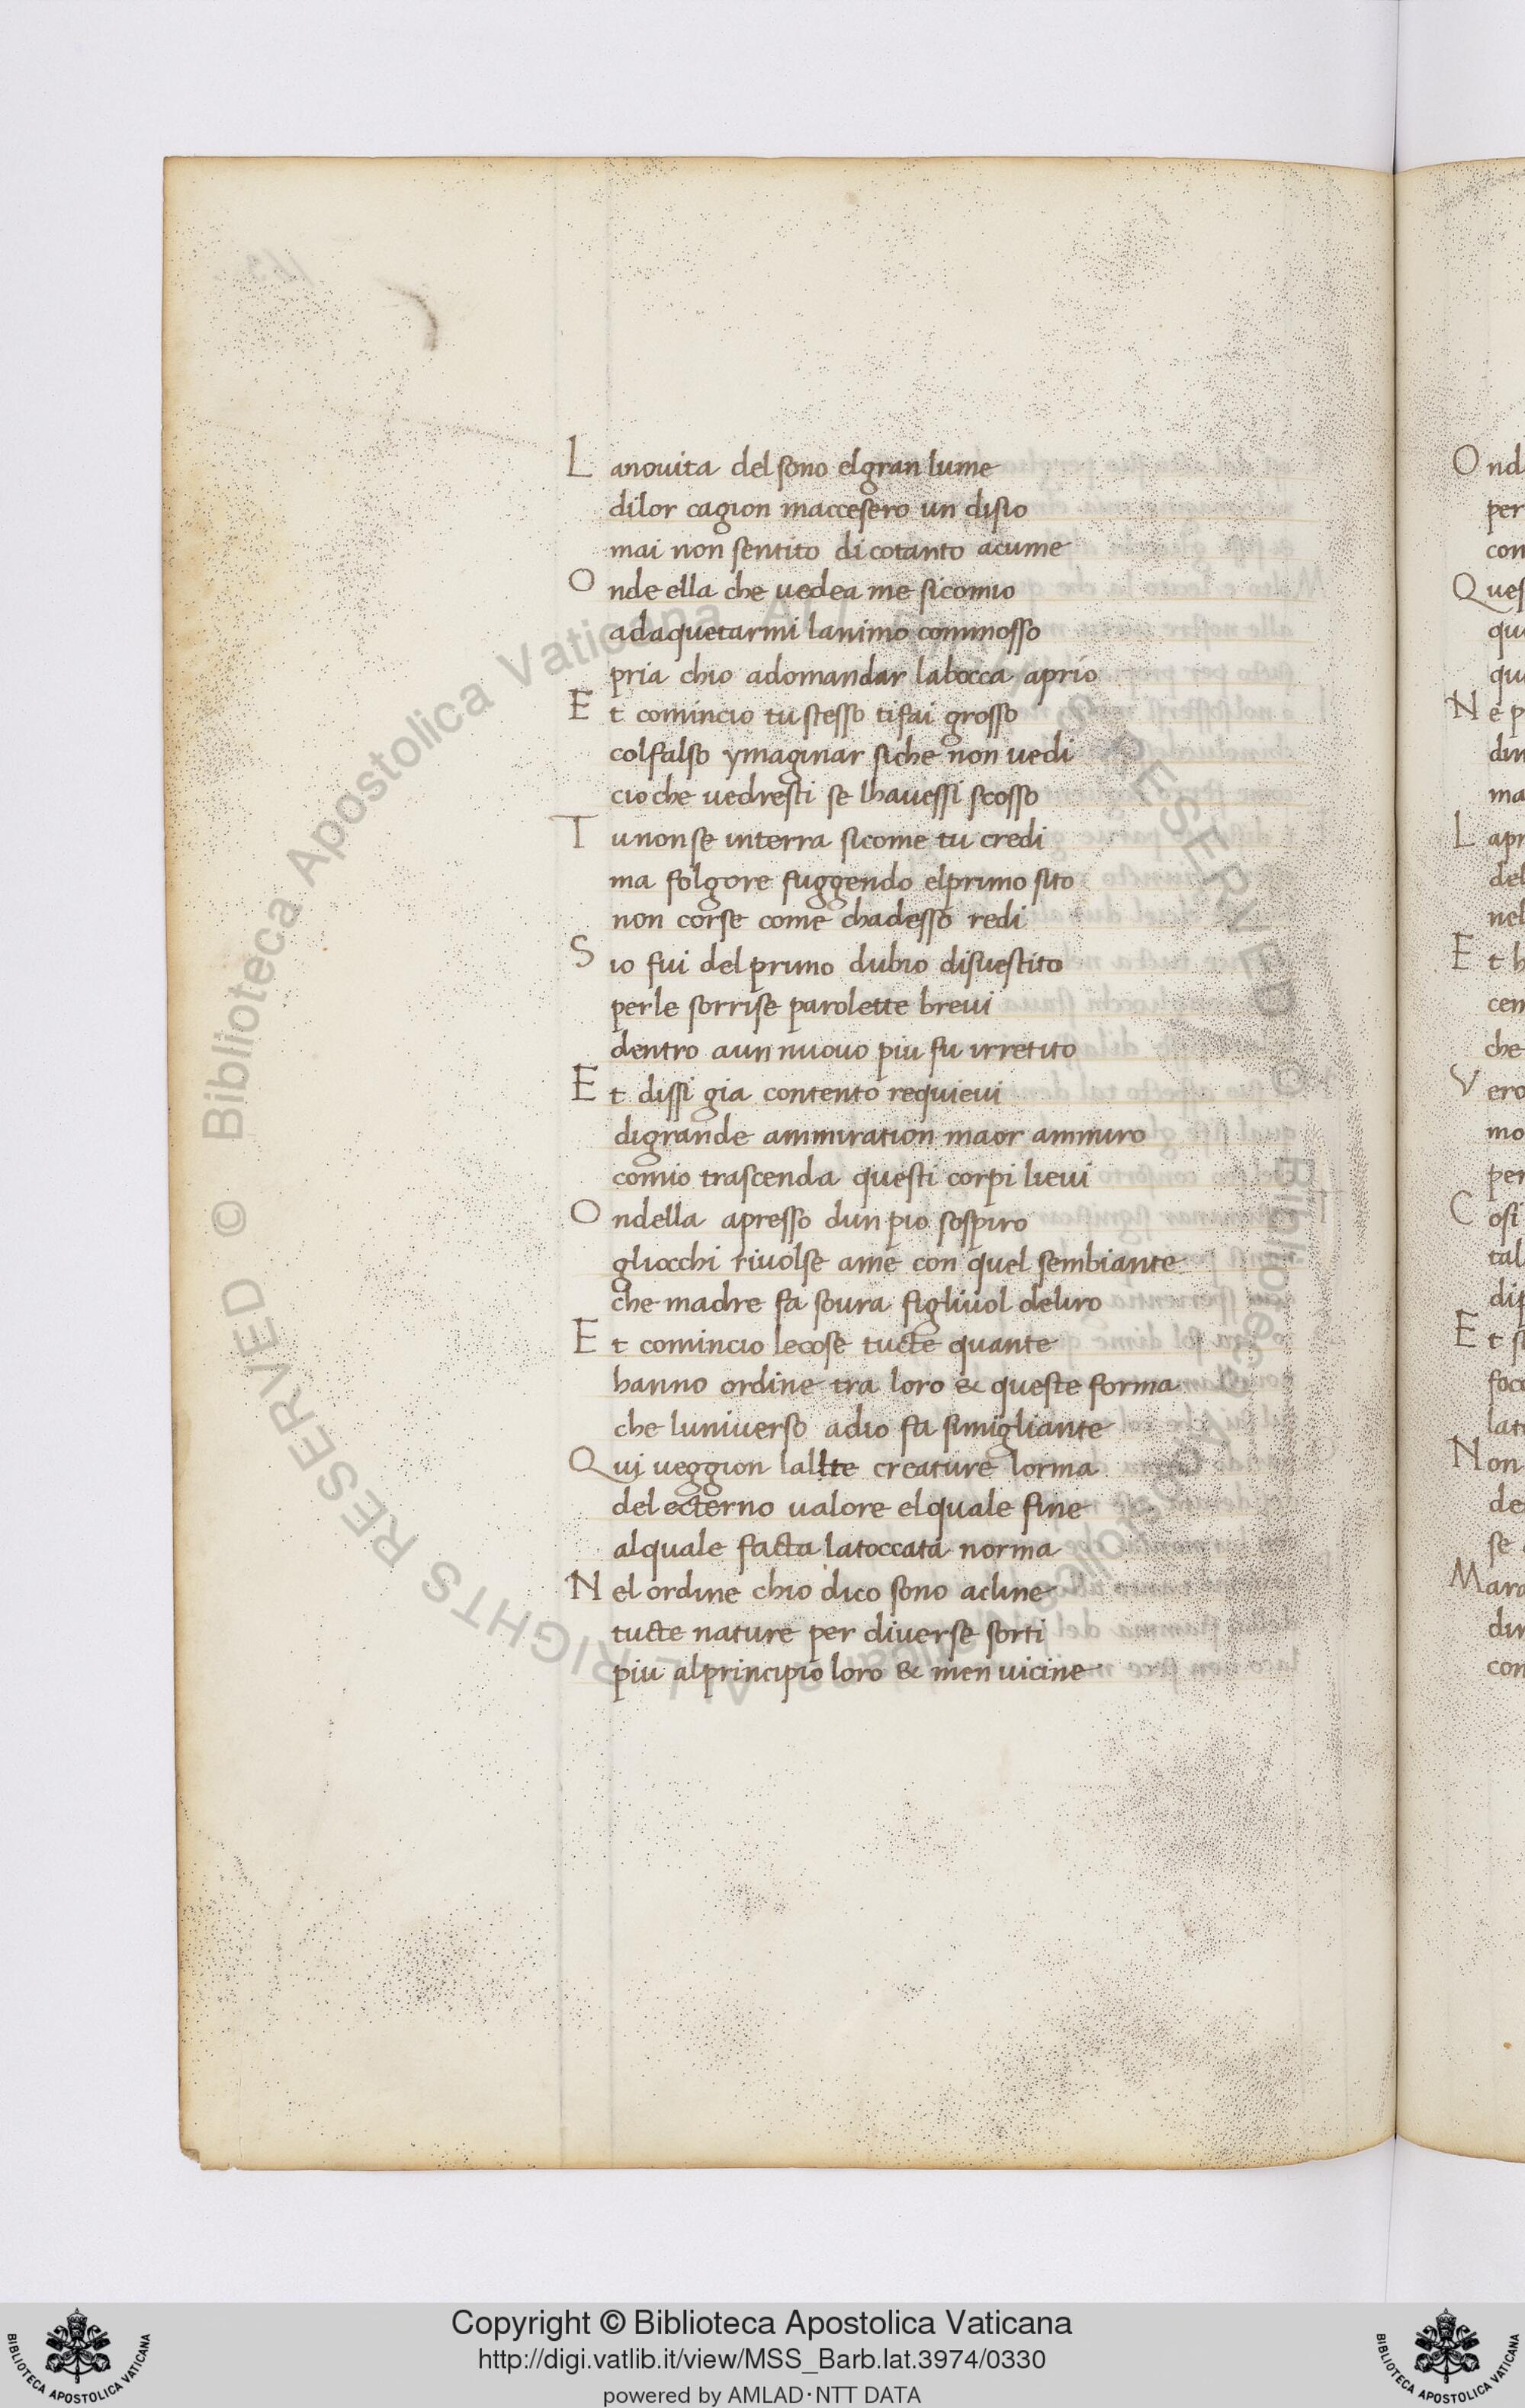 L anouita del sono elgran lume
dilor cagion maccesero un disio
mai non sentito di cotanto acume
O nde ella che uedea me sicomio
adaquetarmi lanimo commosso
pria chio adomandar labocca aprio
E t comincio tu stesso tifai grosso
colfalso ymaginar siche non uedi
cio che uedresti se lhauessi scosso
T u non se interra sicome tu credi
ma folgore fuggendo elprimo sito
non corse come chadesso redi
S io fui del primo dubio disuestito
perle sorrise parolette breui
dentro aun nuouo piu fu irretito
E t dissi gia contento requieui
digrande ammiration maor ammiro
comio trascenda questi corpi lieui
O ndella apresso dun pio sospiro
gliocchi riuolse ame con quel sembiante
che madre fa soura figliuol deliro
E t comincio lecose tucte quante
hanno ordine tra loro & queste forma
che luniuerso adio fa simigliante
Q ui ueggion lallte creature lorma
del ecterno ualore elquale fine
alquale facta latoccata norma
N el ordine chio dico sono acline
tucte nature per diuerse sorti
piu alprincipio loro & men uicine
O nd
per
con
Q ues
qu
qu
N e p
din
ma
L apr
del
nel
E t h
cen
che
V ero
mo
per
C osi
tal
dip
E t s
foco
lat
N on
de
se
M ara
din
con
© Biblioteca Apostolica Vaticana ALL RIGHTS RESERVED
© Biblioteca Apostolica Vaticana ALL RIGHTS RESERVED
Copyright © Biblioteca Apostolica Vaticana
http://digi.vatlib.it/view/MSS_Barb.lat.3974/0330
powered by AMLAD·NTT DATA
BIBLIOTECA APOSTOLICA VATICANA
BIBLIOTECA APOSTOLICA VATICANA